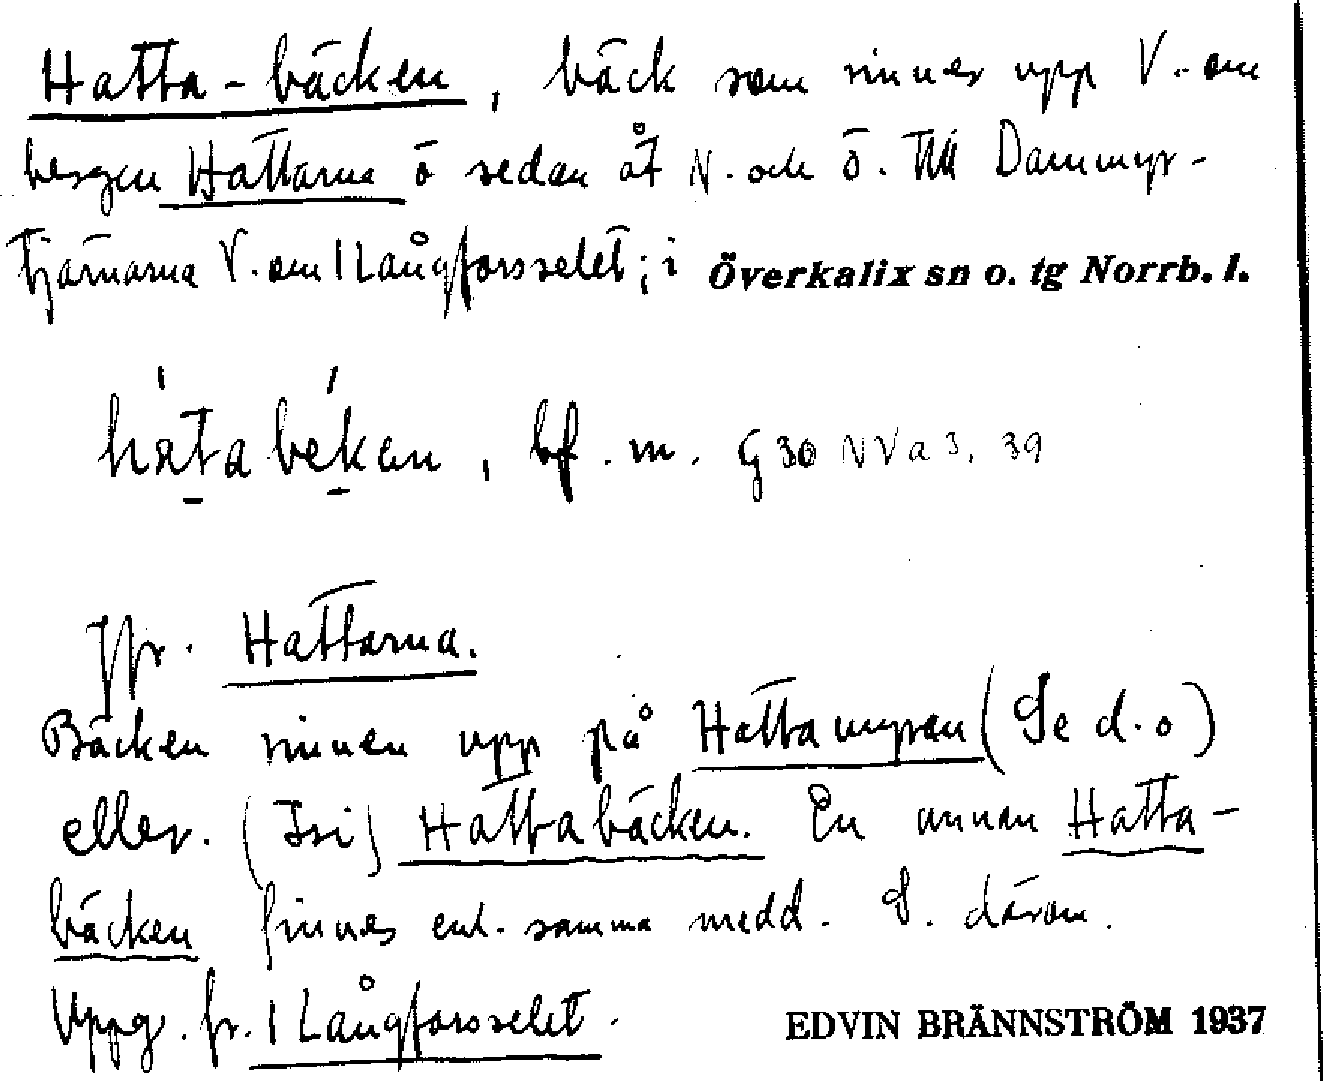 Hatta-bäcken, bäck som rinner upp V. om
bergen Hattarna ö sedan åt N. och ö. till Dammyr-
tjärnarna V. om 1 Långforsselet; i Överkalix sn o. tg Norrb. l.
bf. m. G 30 NV a 3, 39
Jfr. Hattarna.
Bäcken rinner upp på Hattamyren (Se d.o)
eller. Hattabäcken. En annan Hatta-
bäcken finnes enl. samma medd. S. därom.
Uppg. fr. 1 Långforsselet.
EDVIN BRÄNNSTRÖM 1937